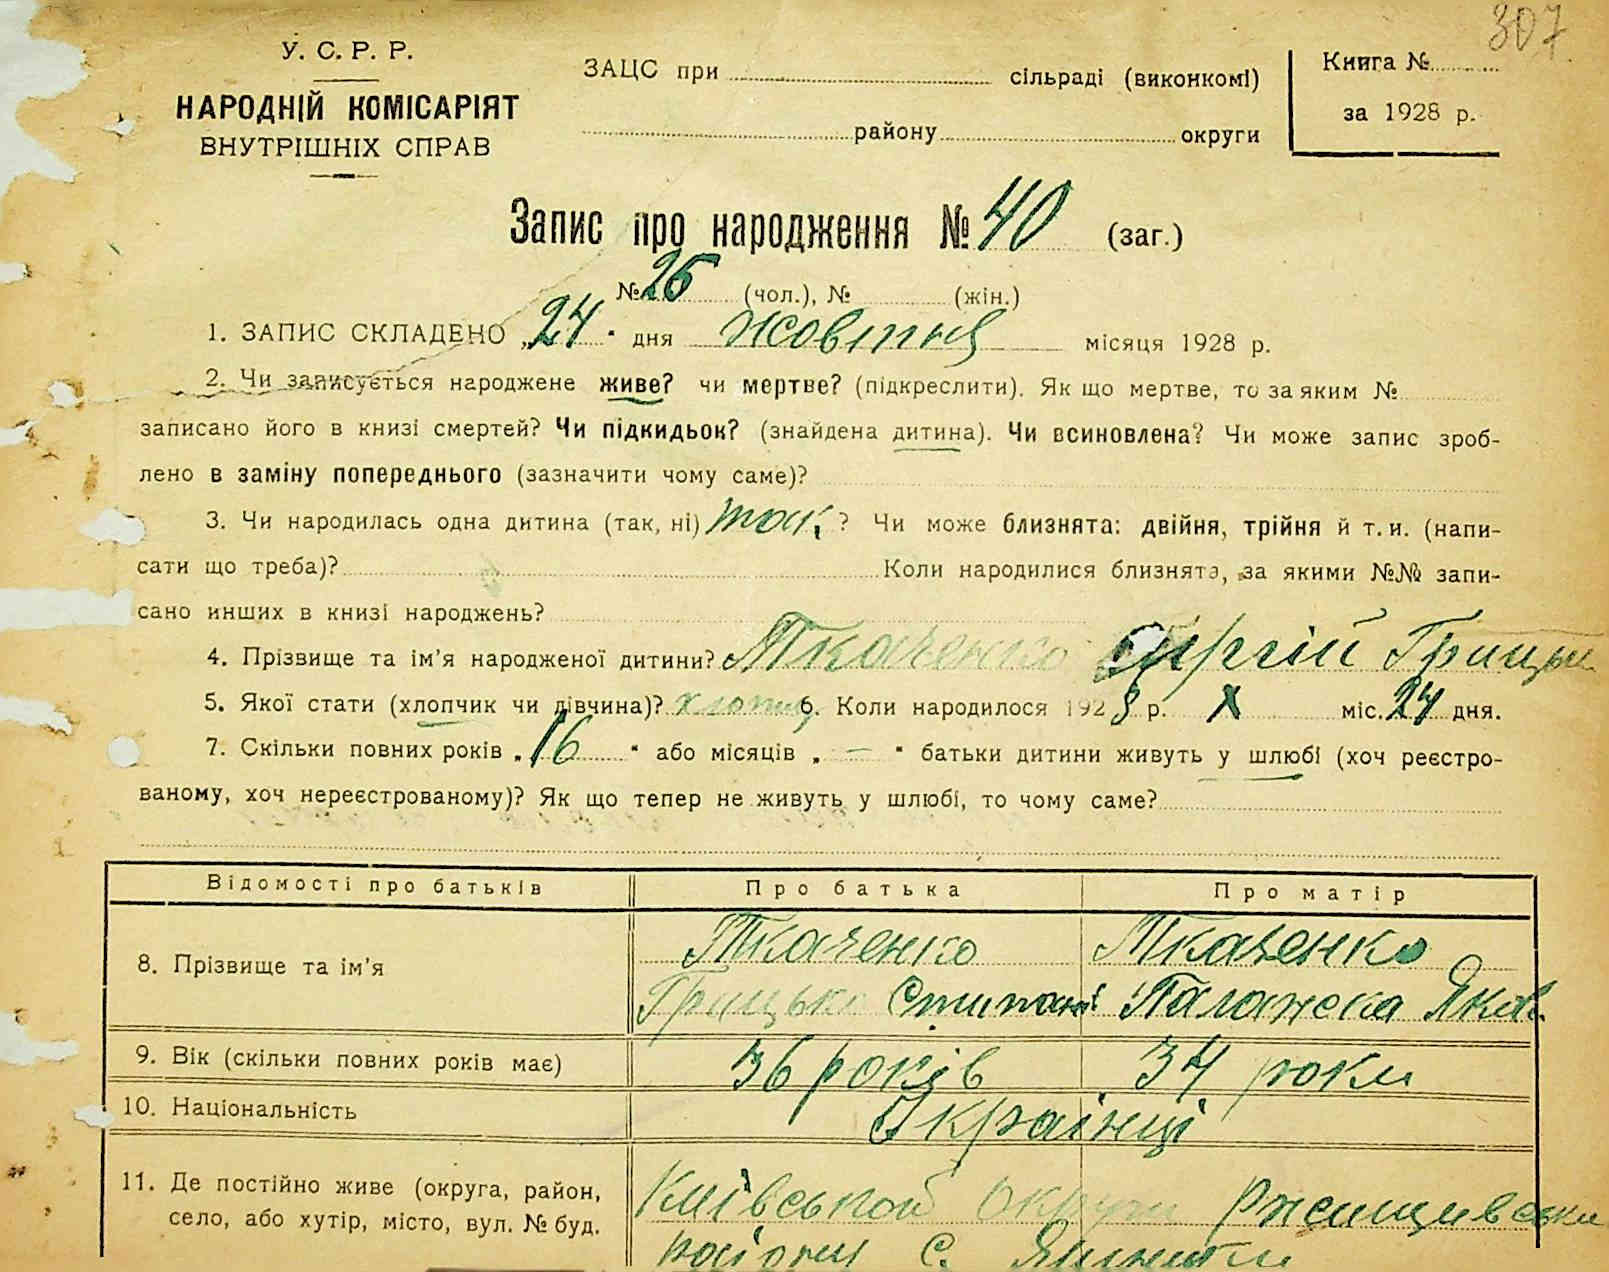 307
У. С. Р. Р.
НАРОДНІЙ КОМІСАРІЯТ
ВНУТРІШНІХ СПРАВ
ЗАЦС при сільраді (виконкомі)
району округи
Книга №
за 1928 р.
Запис про народження № 40 (заг.)
№ 26 (чол.), № (жін.)
1. ЗАПИС СКЛАДЕНО „24" дня жовтня місяця 1928 р.
2. Чи записується народжене живе? чи мертве? (підкреслити). Як що мертве, то за яким №
записано його в книзі смертей? Чи підкидьок? (знайдена дитина). Чи всиновлена? Чи може запис зроб-
лено в заміну попереднього (зазначити чому саме)?
3. Чи народилась одна дитина (так, ні) так ? Чи може близнята: двійня, трійня й т. и. (напи-
сати що треба)? Коли народилися близнята, за якими №№ запи-
сано инших в книзі народжень?
4. Прізвище та ім'я народженої дитини? Ткаченко Сергій
5. Якої стати (хлопчик чи дівчина)? хлопець 6. Коли народилося 1928 р. X міс. 24 дня.
7. Скільки повних років „16" або місяців „—" батьки дитини живуть у шлюбі (хоч реєстро-
ваному, хоч нереєстрованому)? Як що тепер не живуть у шлюбі, то чому саме?
Відомості про батьків Про батька Про матір
8. Прізвище та ім'я Ткаченко Ткаченко
Грицько Палажка Яков
9. Вік (скільки повних років має) 36 років 34 роки
10. Національність Українці
11. Де постійно живе (округа, район,
село, або хутір, місто, вул. № буд.
Київської округи Ржищивськи
району с.